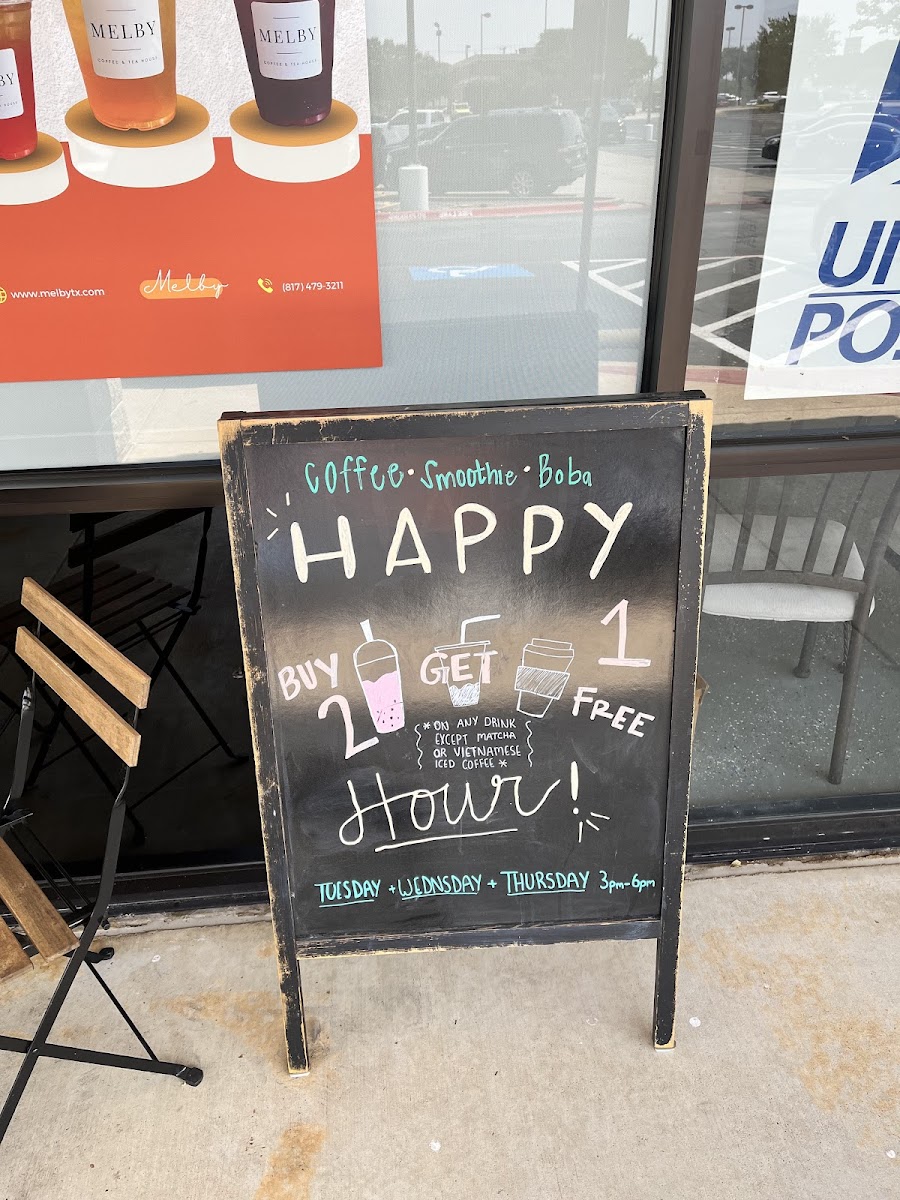 BY
MELBY
COFFEE & TEA HOUSE
MELBY
COFFEE & TEA HOUSE
www.melbytx.com
Melby
(817) 479-3211
COFFEE · Smoothie · Boba
HAPPY
BUY 2 GET 1 FREE
*ON ANY DRINK
EXCEPT MATCHA
OR VIETNAMESE
ICED COFFEE*
Hour!
TUESDAY + WEDNSDAY + THURSDAY 3pm-6pm